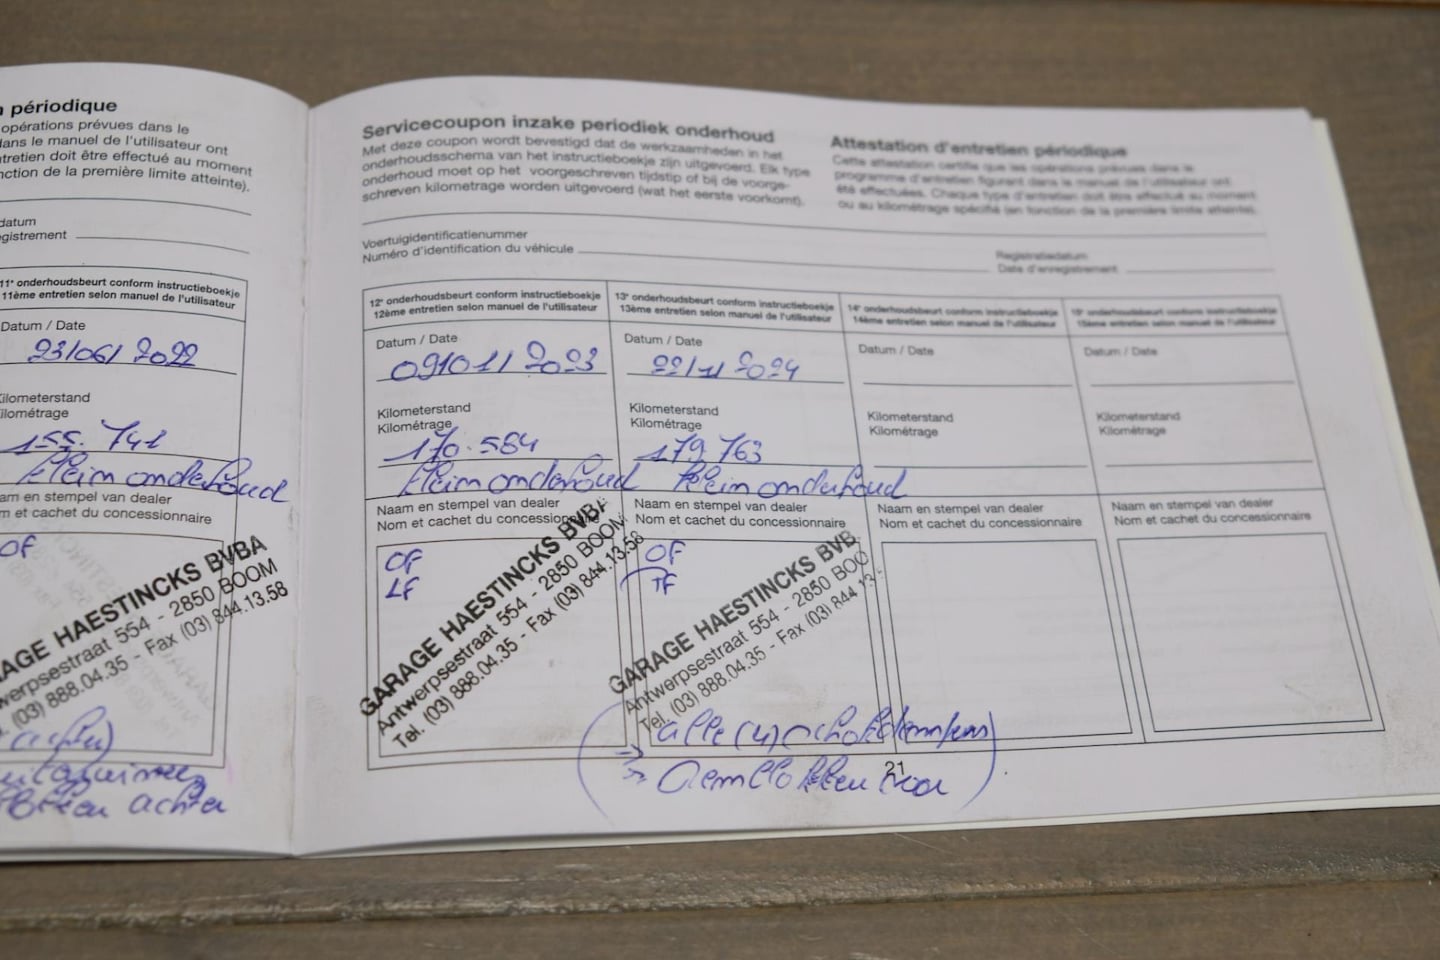 n périodique
opérations prévues dans le
dans le manuel de l'utilisateur ont
ntretien doit être effectué au moment
nction de la première limite atteinte).
datum
gistrement
11e onderhoudsbeurt conform instructieboekje
11ème entretien selon manuel de l'utilisateur
Datum / Date
23/06/2022
Kilometerstand
Kilométrage
155.741
klein onderhoud
am en stempel van dealer
m et cachet du concessionnaire
OF
AGE HAESTINCKS BVBA
werpsestraat 554 - 2850 BOOM
(03) 888.04.35 - Fax (03) 844.13.58
achter
Servicecoupon inzake periodiek onderhoud
Met deze coupon wordt bevestigd dat de werkzaamheden in het
onderhoudsschema van het instructieboekje zijn uitgevoerd. Elk type
onderhoud moet op het voorgeschreven tijdstip of bij de voorge-
schreven kilometrage worden uitgevoerd (wat het eerste voorkomt).
Attestation d'entretien périodique
Cette attestation certifie que les opérations prévues dans le
programme d'entretien figurant dans le manuel de l'utilisateur ont
été effectuées. Chaque type d'entretien doit être effectué au moment
ou au kilométrage spécifié (en fonction de la première limite atteinte).
Voertuigidentificatienummer
Numéro d'identification du véhicule
Registratiedatum
Date d'enregistrement
12e onderhoudsbeurt conform instructieboekje
12ème entretien selon manuel de l'utilisateur
Datum / Date
09/01/2023
Kilometerstand
Kilométrage
170.584
klein onderhoud
Naam en stempel van dealer
Nom et cachet du concessionnaire
OF
LF
GARAGE HAESTINCKS BVBA
Antwerpsestraat 554 - 2850 BOOM
Tel. (03) 888.04.35 - Fax (03) 844.13.58
13e onderhoudsbeurt conform instructieboekje
13ème entretien selon manuel de l'utilisateur
Datum / Date
22/11/2024
Kilometerstand
Kilométrage
179 763
klein onderhoud
Naam en stempel van dealer
Nom et cachet du concessionnaire
OF
IF
GARAGE HAESTINCKS BVB
Antwerpsestraat 554 - 2850 BOO
Tel. (03) 888.04.35 - Fax (03) 844.13.
alle (4) schokdempers
→ remblokken voor
14e onderhoudsbeurt conform instructieboekje
14ème entretien selon manuel de l'utilisateur
Datum / Date
Kilometerstand
Kilométrage
Naam en stempel van dealer
Nom et cachet du concessionnaire
15e onderhoudsbeurt conform instructieboekje
15ème entretien selon manuel de l'utilisateur
Datum / Date
Kilometerstand
Kilométrage
Naam en stempel van dealer
Nom et cachet du concessionnaire
21